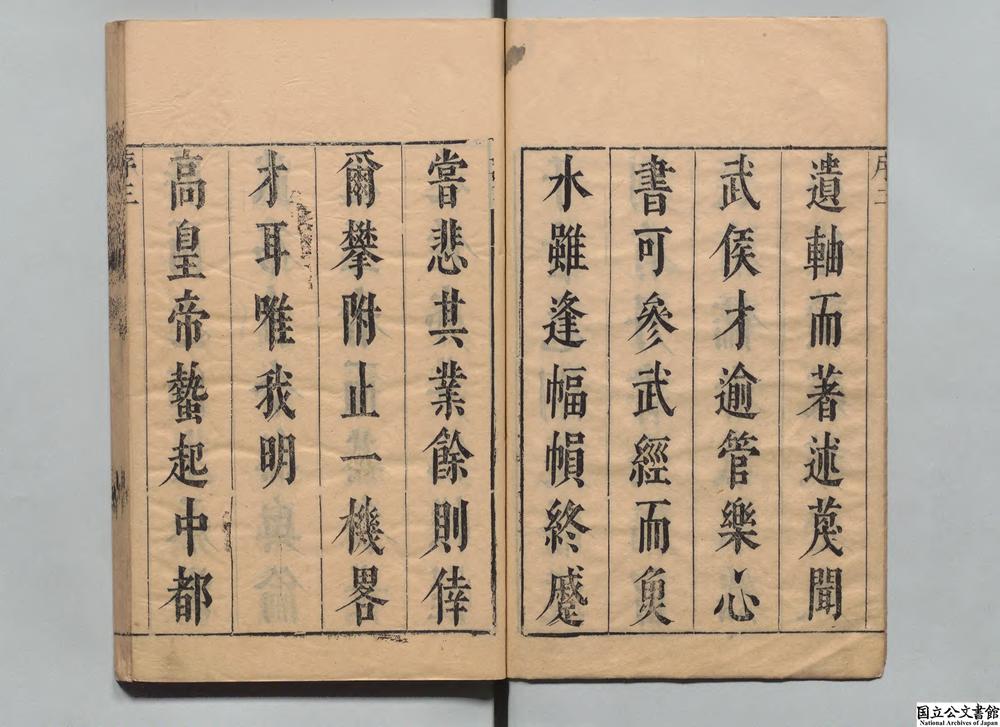 遺軸而著述蔑聞
武侯才逾管樂心
書可參武經而魚
水雖逢幅幀終蹙
嘗悲其業餘則倖
爾攀附止一機畧
才耳唯我明
高皇帝蟄起中都
序二
序三
国立公文書館
National Archives of Japan